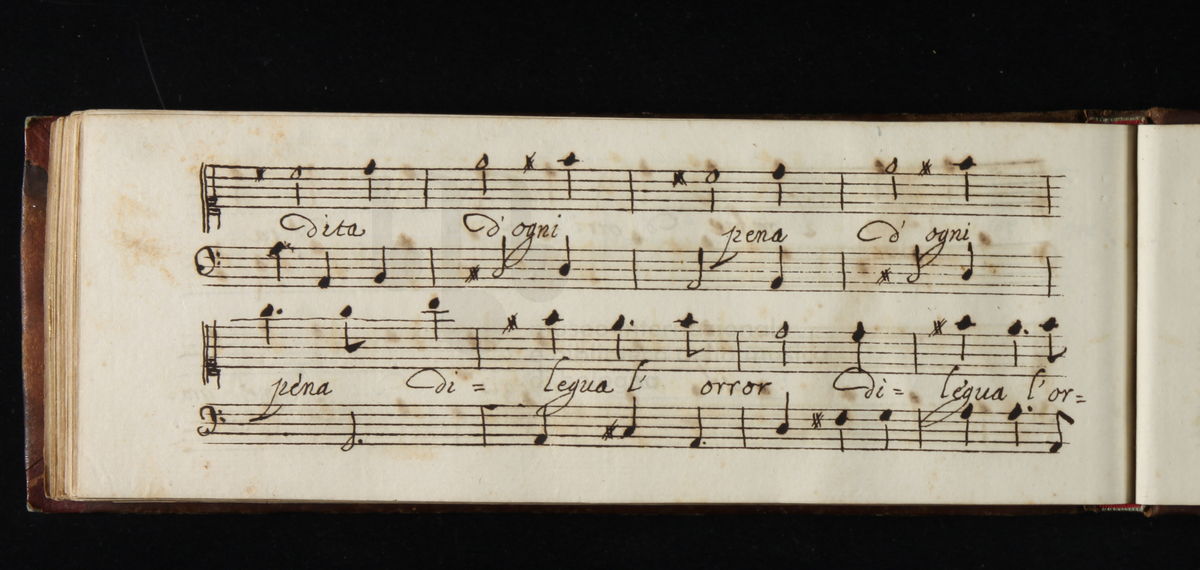 dita d'ogni pena d' ogni
pena di= legua l' orror di= legua l' or=